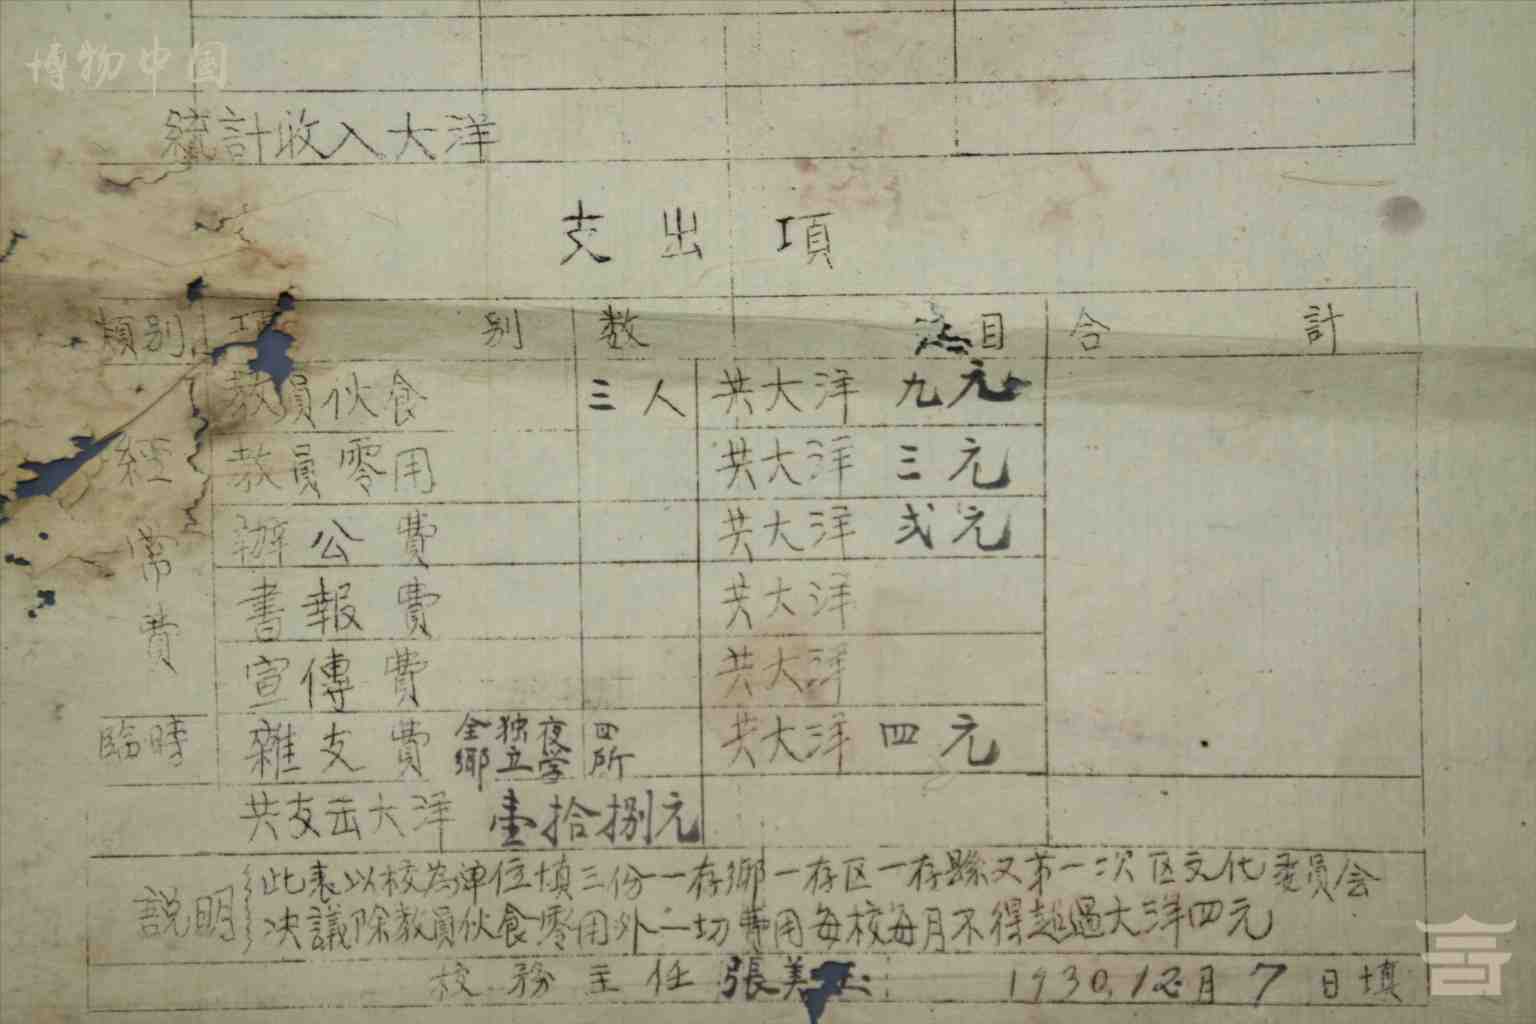 博物中国
統計收入大洋
支出項
類別 項 别 数 目 合計
教員伙食 三人 共大洋 九元
教員零用 共大洋 三元
經常費
辦公費 共大洋 弍元
書報費 共大洋
宣傳費 共大洋
臨時 雜支費 全鄉独立夜学 四所 共大洋 四元
共支出大洋 壹拾捌元
説明 此表以校為單位填三份一存鄉一存区一存縣又第一次区文化委員会
决議除教員伙食零用外一切費用每校每月不得超過大洋四元
校務主任 張美玉 1930.12月7日填